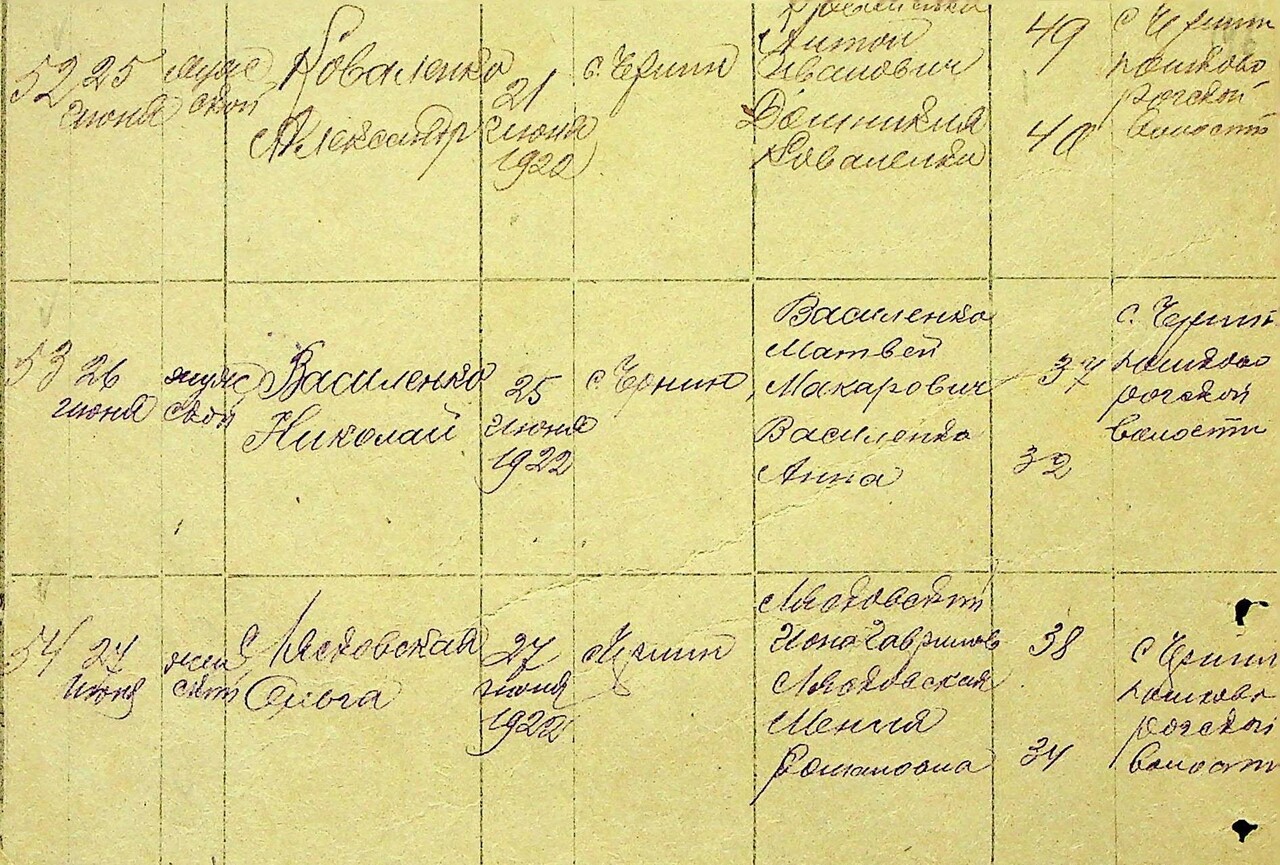 52
25
июня
муже
ской
Коваленко
Александр
21
июня
1922
с. Чернин
Антон
Иванович
Домникия
Коваленко
49
40
с Чернин
рогской
волости
53
26
июня
муже
ской
Василенко
Николай
25
июня
1922
с Чернин
Василенко
Матвей
Макарович
Василенко
Анна
37
32
с. Чернин
рогской
волости
54
27
июня
жен
ской
Лясковская
Ольга
27
июня
1922
Чернин
Лясковский
Иона Гаврилов
Лясковская
Романовна
38
34
с Чернин
рогской
волости